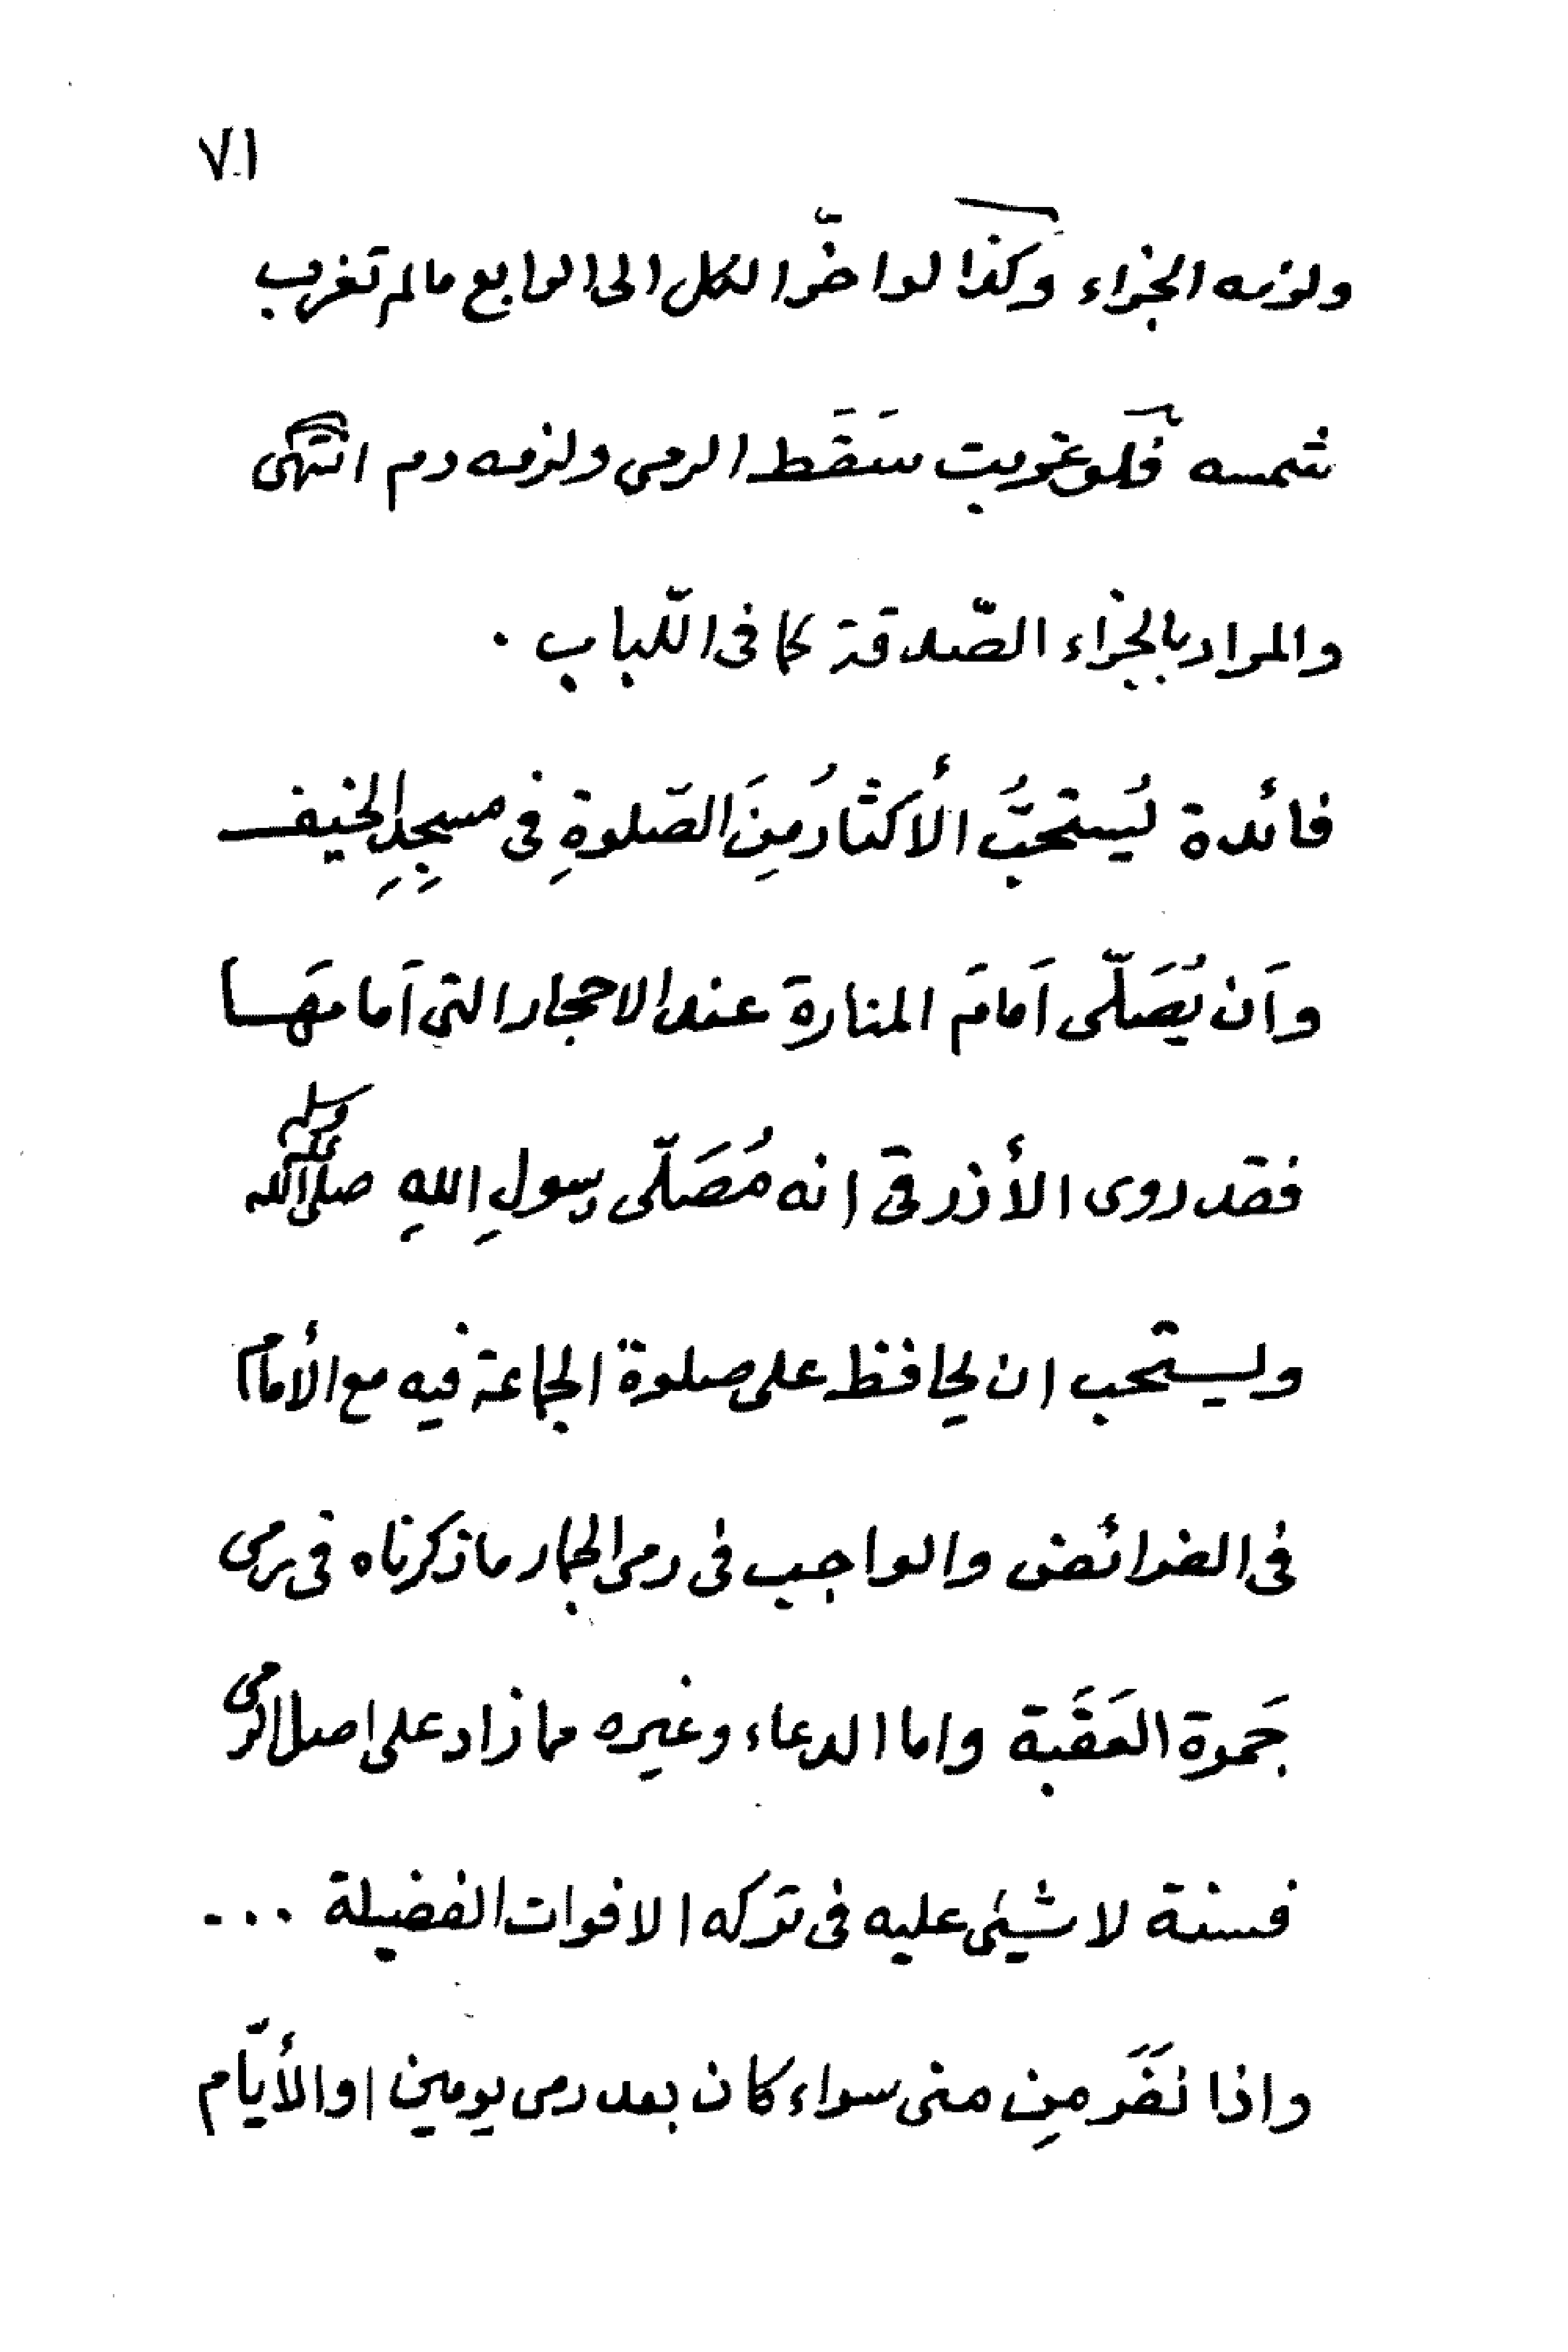 ٧١
ولزمه الجزاء وكذا لو اخّر الكل الى الرابع مالم تغرب
شمسه فلو غربت سَقَط الرمى ولزمه دم انتهى
والمراد بالجزاء الصّدقة كما فى اللّباب .
فائدة يُستحبُّ الأكثارُ مِنَ الصّلوةِ فى مسجِدِ الخيف
وَاَن يُصَلّى اَمامَ المنارة عند الاحجار التى اَمامَهَا
فقد روى الأزرقى انه مُصَلّى رسولِ اللهِ صلى الله عليه وسلم
ويستحب ان يحافظ على صلوة الجماعة فيه مع الأمام
فى الفرائض والواجب فى رمى الجمار ماذكرناه فى رمى
جَمرة العَقَبة واما الدعاء وغيره مما زاد على اصل الرمى
فسنة لا شيئ عليه فى تركه الا فوات الفضيلة ...
واذا نَفَر مِن منى سواء كان بعد رمى يومين او الأيّام